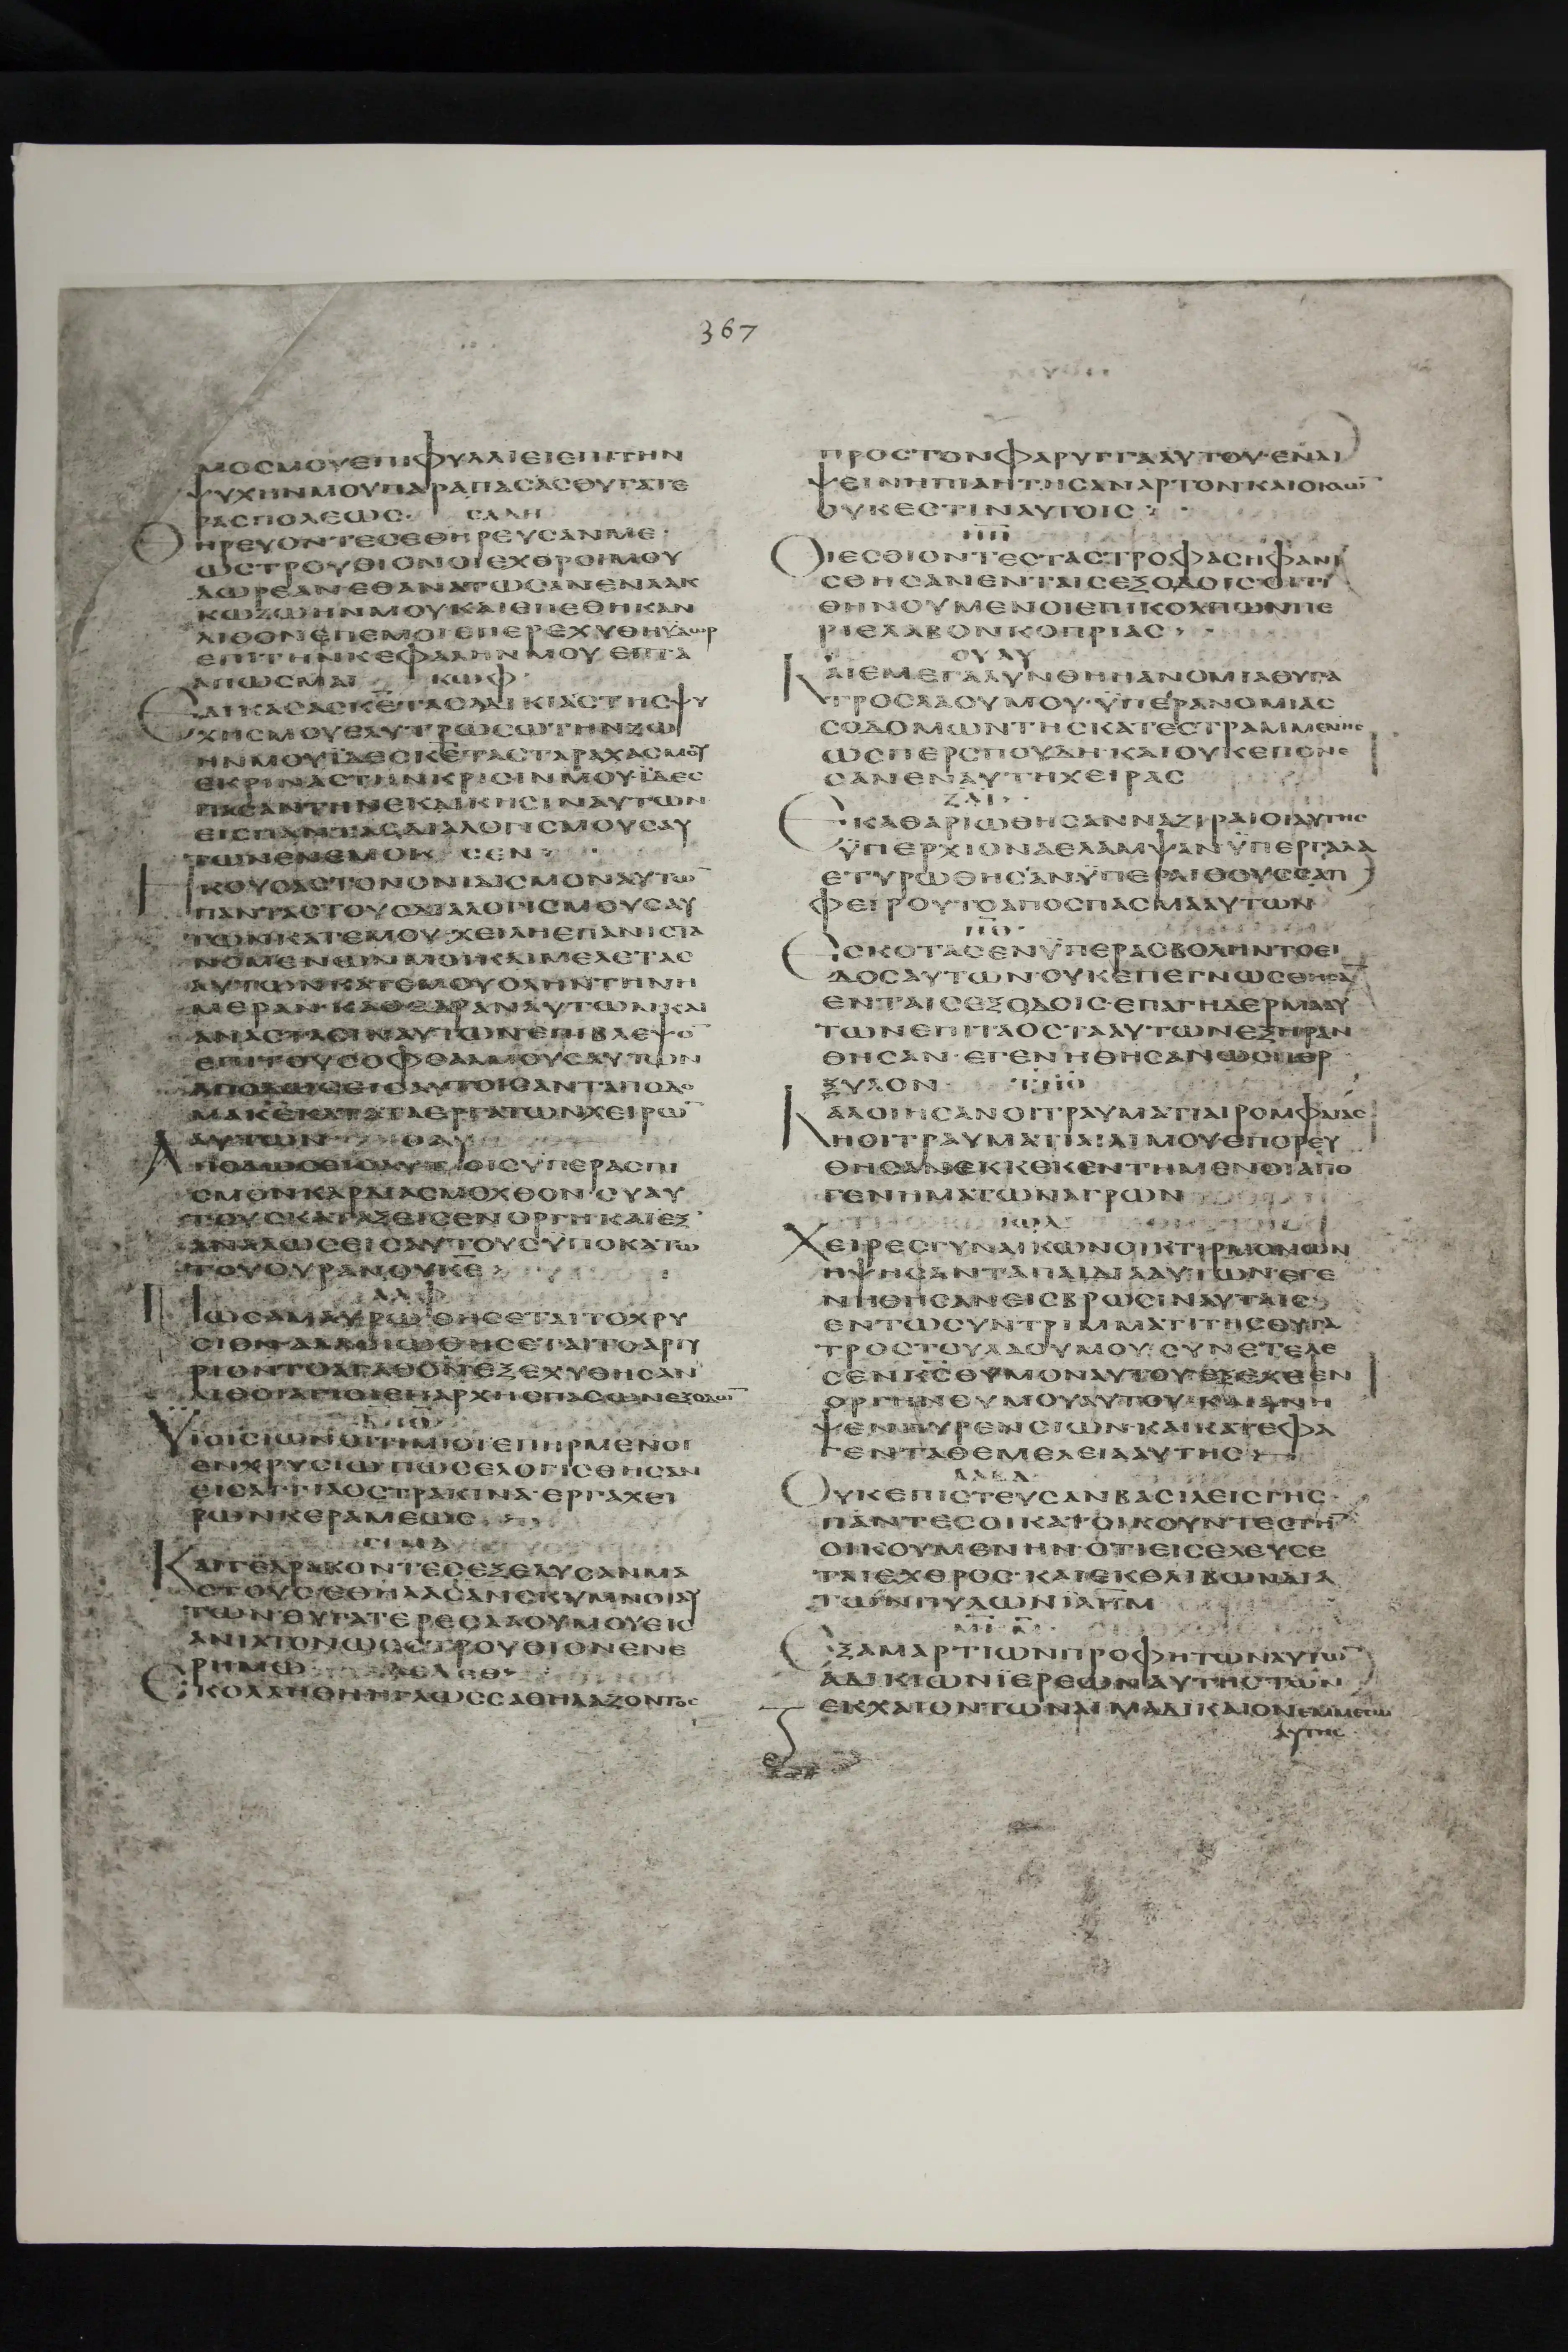 367
ΜΟΣΜΟΥΕΠΙΦΥΛΛΙΕΙΕΠΙΤΗΝ
ΨΥΧΗΝΜΟΥΠΑΡΑΠΑΣΑΣΘΥΓΑΤΕ
ΡΑΣΠΟΛΕΩΣ· ΣΑΔΗ
ΘΗΡΕΥΟΝΤΕΣΕΘΗΡΕΥΣΑΝΜΕ·
ΩΣΤΡΟΥΘΙΟΝΟΙΕΧΘΡΟΙΜΟΥ
ΔΩΡΕΑΝΕΘΑΝΑΤΩΣΑΝΕΝΛΑΚ
ΚΩΖΩΗΝΜΟΥΚΑΙΕΠΕΘΗΚΑΝ
ΛΙΘΟΝΕΠΕΜΟΙΕΠΕΡΕΧΥΘΗΫΔΩΡ
ΕΠΙΤΗΝΚΕΦΑΛΗΝΜΟΥ ΕΙΠΑ
ΑΠΩΣΜΑΙ ΚΩΦ·
ΕΔΙΚΑΣΑΣΚΕΤΑΣΔΙΚΙΑΣΤΗΣΨΥ
ΧΗΣΜΟΥΕΛΥΤΡΩΣΩΤΗΝΖΩ
ΗΝΜΟΥΪΔΕΣΚΕΤΑΣΤΑΡΑΧΑΣΜΟΥ
ΕΚΡΙΝΑΣΤΗΝΚΡΙΣΙΝΜΟΥ·ΪΔΕΣ
ΠΑΣΑΝΤΗΝΕΚΔΙΚΗΣΙΝΑΥΤΩΝ
ΕΙΣΠΑΝΤΑΣΔΙΑΛΟΓΙΣΜΟΥΣΑΥ
ΤΩΝΕΝΕΜΟΙ· ΣΕΝ·
ΗΚΟΥΣΑΣΤΟΝΟΝΙΔΙΣΜΟΝΑΥΤΩ̄
ΠΑΝΤΑΣΤΟΥΣΔΙΑΛΟΓΙΣΜΟΥΣΑΥ
ΤΩΝΚΑΤΕΜΟΥ·ΧΕΙΛΗΕΠΑΝΙΣΤΑ
ΝΟΜΕΝΩΝΜΟΙΚΑΙΜΕΛΕΤΑΣ
ΑΥΤΩΝΚΑΤΕΜΟΥΟΛΗΝΤΗΝΗ
ΜΕΡΑΝ·ΚΑΘΕΔΡΑΝΑΥΤΩΝΚΑΙ
ΑΝΑΣΤΑΣΙΝΑΥΤΩΝΕΠΙΒΛΕΨΟ̄
ΕΠΙΤΟΥΣΟΦΘΑΛΜΟΥΣΑΥΤΩΝ
ΑΠΟΔΩΣΕΙΣΑΥΤΟΙΣΑΝΤΑΠΟΔΟ
ΜΑΚΕΚΑΤΑΤΑΕΡΓΑΤΩΝΧΕΙΡΩ̄
ΑΥΤΩΝ ΘΑΥ
ΑΠΟΔΩΣΕΙΣΑΥΤΟΙΣΫΠΕΡΑΣΠΙ
ΣΜΟΝΚΑΡΔΙΑΣΜΟΧΘΟΝ·ΣΥΑΥ
ΤΟΥΣΚΑΤΑΞΕΙΣΕΝΟΡΓΗΚΑΙΕΞ
ΑΝΑΛΩΣΕΙΣΑΥΤΟΥΣΫΠΟΚΑΤΩ
ΤΟΥΟΥΡΑΝΟΥΚΕ
ΑΛΦ
ΠΩΣΑΜΑΥΡΩΘΗΣΕΤΑΙΤΟΧΡΥ
ΣΙΟΝ·ΑΛΛΟΙΩΘΗΣΕΤΑΙΤΟΑΡΓΥ
ΡΙΟΝΤΟΑΓΑΘΟΝΕΞΕΧΥΘΗΣΑΝ
ΛΙΘΟΙΑΓΙΟΙΕΠΑΡΧΗΣΠΑΣΩΝΕΞΟΔΩ̄
ΥΙΟΙΣΙΩΝΟΙΤΙΜΙΟΙΕΠΗΡΜΕΝΟΙ
ΕΝΧΡΥΣΙΩΠΩΣΕΛΟΓΙΣΘΗΣΑΝ
ΕΙΣΑΓΓΙΑΟΣΤΡΑΚΙΝΑ·ΕΡΓΑΧΕΙ
ΡΩΝΚΕΡΑΜΕΩΣ
ΓΙΜΛ
ΚΑΙΓΕΔΡΑΚΟΝΤΕΣΕΞΕΔΥΣΑΝΜΑ
ΣΤΟΥΣΕΘΗΛΑΣΑΝΣΚΥΜΝΟΙΑΥ
ΤΩΝΘΥΓΑΤΕΡΕΣΛΑΟΥΜΟΥΕΙΣ
ΑΝΙΑΤΟΝΩΣΣΤΡΟΥΘΙΟΝΕΝΕ
ΡΗΜΩ ΔΕΛΕΘ
ΕΚΟΛΛΗΘΗΗΓΛΩΣΣΑΘΗΛΑΖΟΝΤΟΣ
ΠΡΟΣΤΟΝΦΑΡΥΓΓΑΑΥΤΟΥ·ΕΝΔΙ
ΨΕΙΝΗΠΙΑΗΤΗΣΑΝΑΡΤΟΝΚΑΙΟΚΛΩ̄
ΟΥΚΕΣΤΙΝΑΥΤΟΙΣ·
ΗΗ
ΟΙΕΣΘΙΟΝΤΕΣΤΑΣΤΡΟΦΑΣΗΦΑΝΙ
ΣΘΗΣΑΝΕΝΤΑΙΣΕΞΟΔΟΙΣ·ΟΙΤΙ
ΘΗΝΟΥΜΕΝΟΙΕΠΙΚΟΚΚΩΝΠΕ
ΡΙΕΛΑΒΟΝΚΟΠΡΙΑΣ·
ΟΥΑΥ
ΚΑΙΕΜΕΓΑΛΥΝΘΗΗΑΝΟΜΙΑΘΥΓΑ
ΤΡΟΣΛΑΟΥΜΟΥ·ΫΠΕΡΑΝΟΜΙΑΣ
ΣΟΔΟΜΩΝΤΗΣΚΑΤΕΣΤΡΑΜΜΕΝΗΣ
ΩΣΠΕΡΣΠΟΥΔΗ·ΚΑΙΟΥΚΕΠΟΝΕ
ΣΑΝΕΝΑΥΤΗΧΕΙΡΑΣ
ΖΑΙ·
ΕΚΑΘΑΡΙΩΘΗΣΑΝΝΑΖΙΡΑΙΟΙΑΥΤΗΣ
ΫΠΕΡΧΙΟΝΑΕΛΑΜΨΑΝΫΠΕΡΓΑΛΑ
ΕΤΥΡΩΘΗΣΑΝΫΠΕΡΛΙΘΟΥΣΣΑΠ
ΦΕΙΡΟΥΤΟΑΠΟΣΠΑΣΜΑΑΥΤΩΝ
ΕΣΚΟΤΑΣΕΝΫΠΕΡΑΣΒΟΛΗΝΤΟΕΙ
ΔΟΣΑΥΤΩΝ·ΟΥΚΕΠΕΓΝΩΣΘΗΣᾹ
ΕΝΤΑΙΣΕΞΟΔΟΙΣ·ΕΠΑΓΗΔΕΡΜΑΑΥ
ΤΩΝΕΠΙΤΑΟΣΤΑΑΥΤΩΝΕΞΗΡΑΝ
ΘΗΣΑΝ·ΕΓΕΝΗΘΗΣΑΝΩΣΠΕΡ
ΞΥΛΟΝ·
ΚΑΛΟΙΗΣΑΝΟΙΤΡΑΥΜΑΤΙΑΙΡΟΜΦΑΙΑΣ
ΗΟΙΤΡΑΥΜΑΤΙΑΙΛΙΜΟΥΕΠΟΡΕΥ
ΘΗΣΑΝΕΚΚΕΚΕΝΤΗΜΕΝΟΙΑΠΟ
ΓΕΝΗΜΑΤΩΝΑΓΡΩΝ
ΙΩΔ
ΧΕΙΡΕΣΓΥΝΑΙΚΩΝΟΙΚΤΙΡΜΟΝΩΝ
ΗΨΗΣΑΝΤΑΠΑΙΔΙΑΑΥΤΩΝ·ΕΓΕ
ΝΗΘΗΣΑΝΕΙΣΒΡΩΣΙΝΑΥΤΑΙΣ
ΕΝΤΩΣΥΝΤΡΙΜΜΑΤΙΤΗΣΘΥΓΑ
ΤΡΟΣΤΟΥΛΑΟΥΜΟΥ·ΣΥΝΕΤΕΛΕ
ΣΕΝΚΣΘΥΜΟΝΑΥΤΟΥΕΞΕΧΕΕΝ
ΟΡΓΗΝΘΥΜΟΥΑΥΤΟΥ·ΚΑΙΑΝΗ
ΨΕΝΠΥΡΕΝΣΙΩΝ·ΚΑΙΚΑΤΕΦΑ
ΓΕΝΤΑΘΕΜΕΛΕΙΑΑΥΤΗΣ
ΛΑΒΔ
ΟΥΚΕΠΙΣΤΕΥΣΑΝΒΑΣΙΛΕΙΣΓΗΣ·
ΠΑΝΤΕΣΟΙΚΑΤΟΙΚΟΥΝΤΕΣΤΗ̄
ΟΙΚΟΥΜΕΝΗΝ·ΟΤΙΕΙΣΕΛΕΥΣΕ
ΤΑΙΕΧΘΡΟΣ·ΚΑΙΕΚΘΛΙΒΩΝΔΙΑ
ΤΩΝΠΥΛΩΝΙΛΗΜ
ΕΞΑΜΑΡΤΙΩΝΠΡΟΦΗΤΩΝΑΥΤΗ
ΑΔΙΚΙΩΝΪΕΡΕΩΝΑΥΤΗΣΤΩΝ
ΕΚΧΑΙΟΝΤΩΝΑΙΜΑΔΙΚΑΙΟΝΕΜΜΕΣΩ
ΑΥΤΗΣ